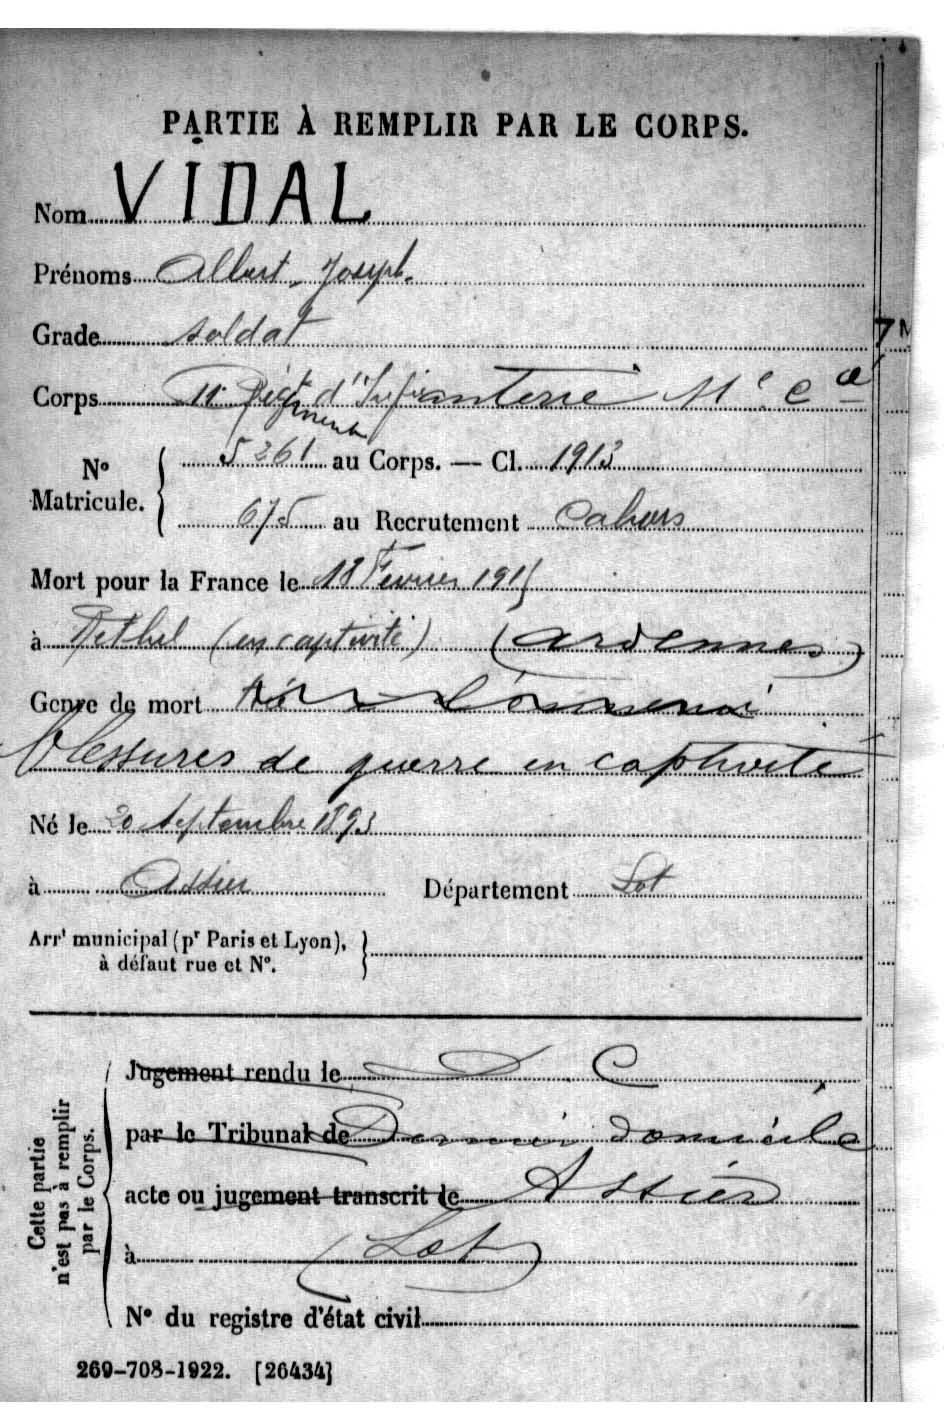 PARTIE À REMPLIR PAR LE CORPS.
Nom VIDAL
Prénoms Albert, Joseph.
Grade soldat
Corps 11e Régt d'Infanterie 11e Cie
N° Matricule. 5361 au Corps. — Cl. 1913
675 au Recrutement Cahors
Mort pour la France le 18 Fevrier 1915
à Rethel (en captivité) (Ardennes)
Genre de mort
blessures de guerre en captivité
Né le 20 Septembre 1893
à Assier Département Lot
Arrt municipal (pr Paris et Lyon),
à défaut rue et N°.
Cette partie
n'est pas à remplir
par le Corps.
Jugement rendu le D C
par le Tribunal de Dernier domicile
acte ou jugement transcrit le Assier
à (Lot)
N° du registre d'état civil
269-708-1922. [26434]